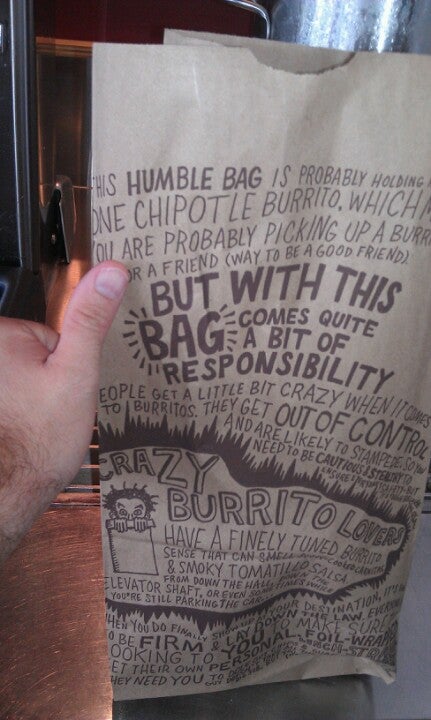 HIS HUMBLE BAG IS PROBABLY HOLDING
ONE CHIPOTLE BURRITO, WHICH M
OU ARE PROBABLY PICKING UP A BURR
OR A FRIEND (WAY TO BE A GOOD FRIEND)
BUT WITH THIS
BAG COMES QUITE
A BIT OF
RESPONSIBILITY
EOPLE GET A LITTLE BIT CRAZY WHEN IT COMES
TO BURRITOS. THEY GET OUT OF CONTROL
AND ARE LIKELY TO STAMPEDE SO
NEED TO BE CAUTIOUS & STEALTHY
CRAZY
BURRITO LOVERS
HAVE A FINELY TUNED BURRITO
SENSE THAT CAN SMELL
& SMOKY TOMATILLO SALSA
FROM DOWN THE HALL
ELEVATOR SHAFT, OR EVEN SOMETIMES WHILE
YOU'RE STILL PARKING THE CAR
HEN YOU DO FINALLY YOUR DESTINATION,
LAY DOWN THE LAW.
O BE FIRM & TO MAKE SURE
OOKING TO YOU FOIL-WRA
ET THEIR OWN PERSONAL
HEY NEED YOU TO